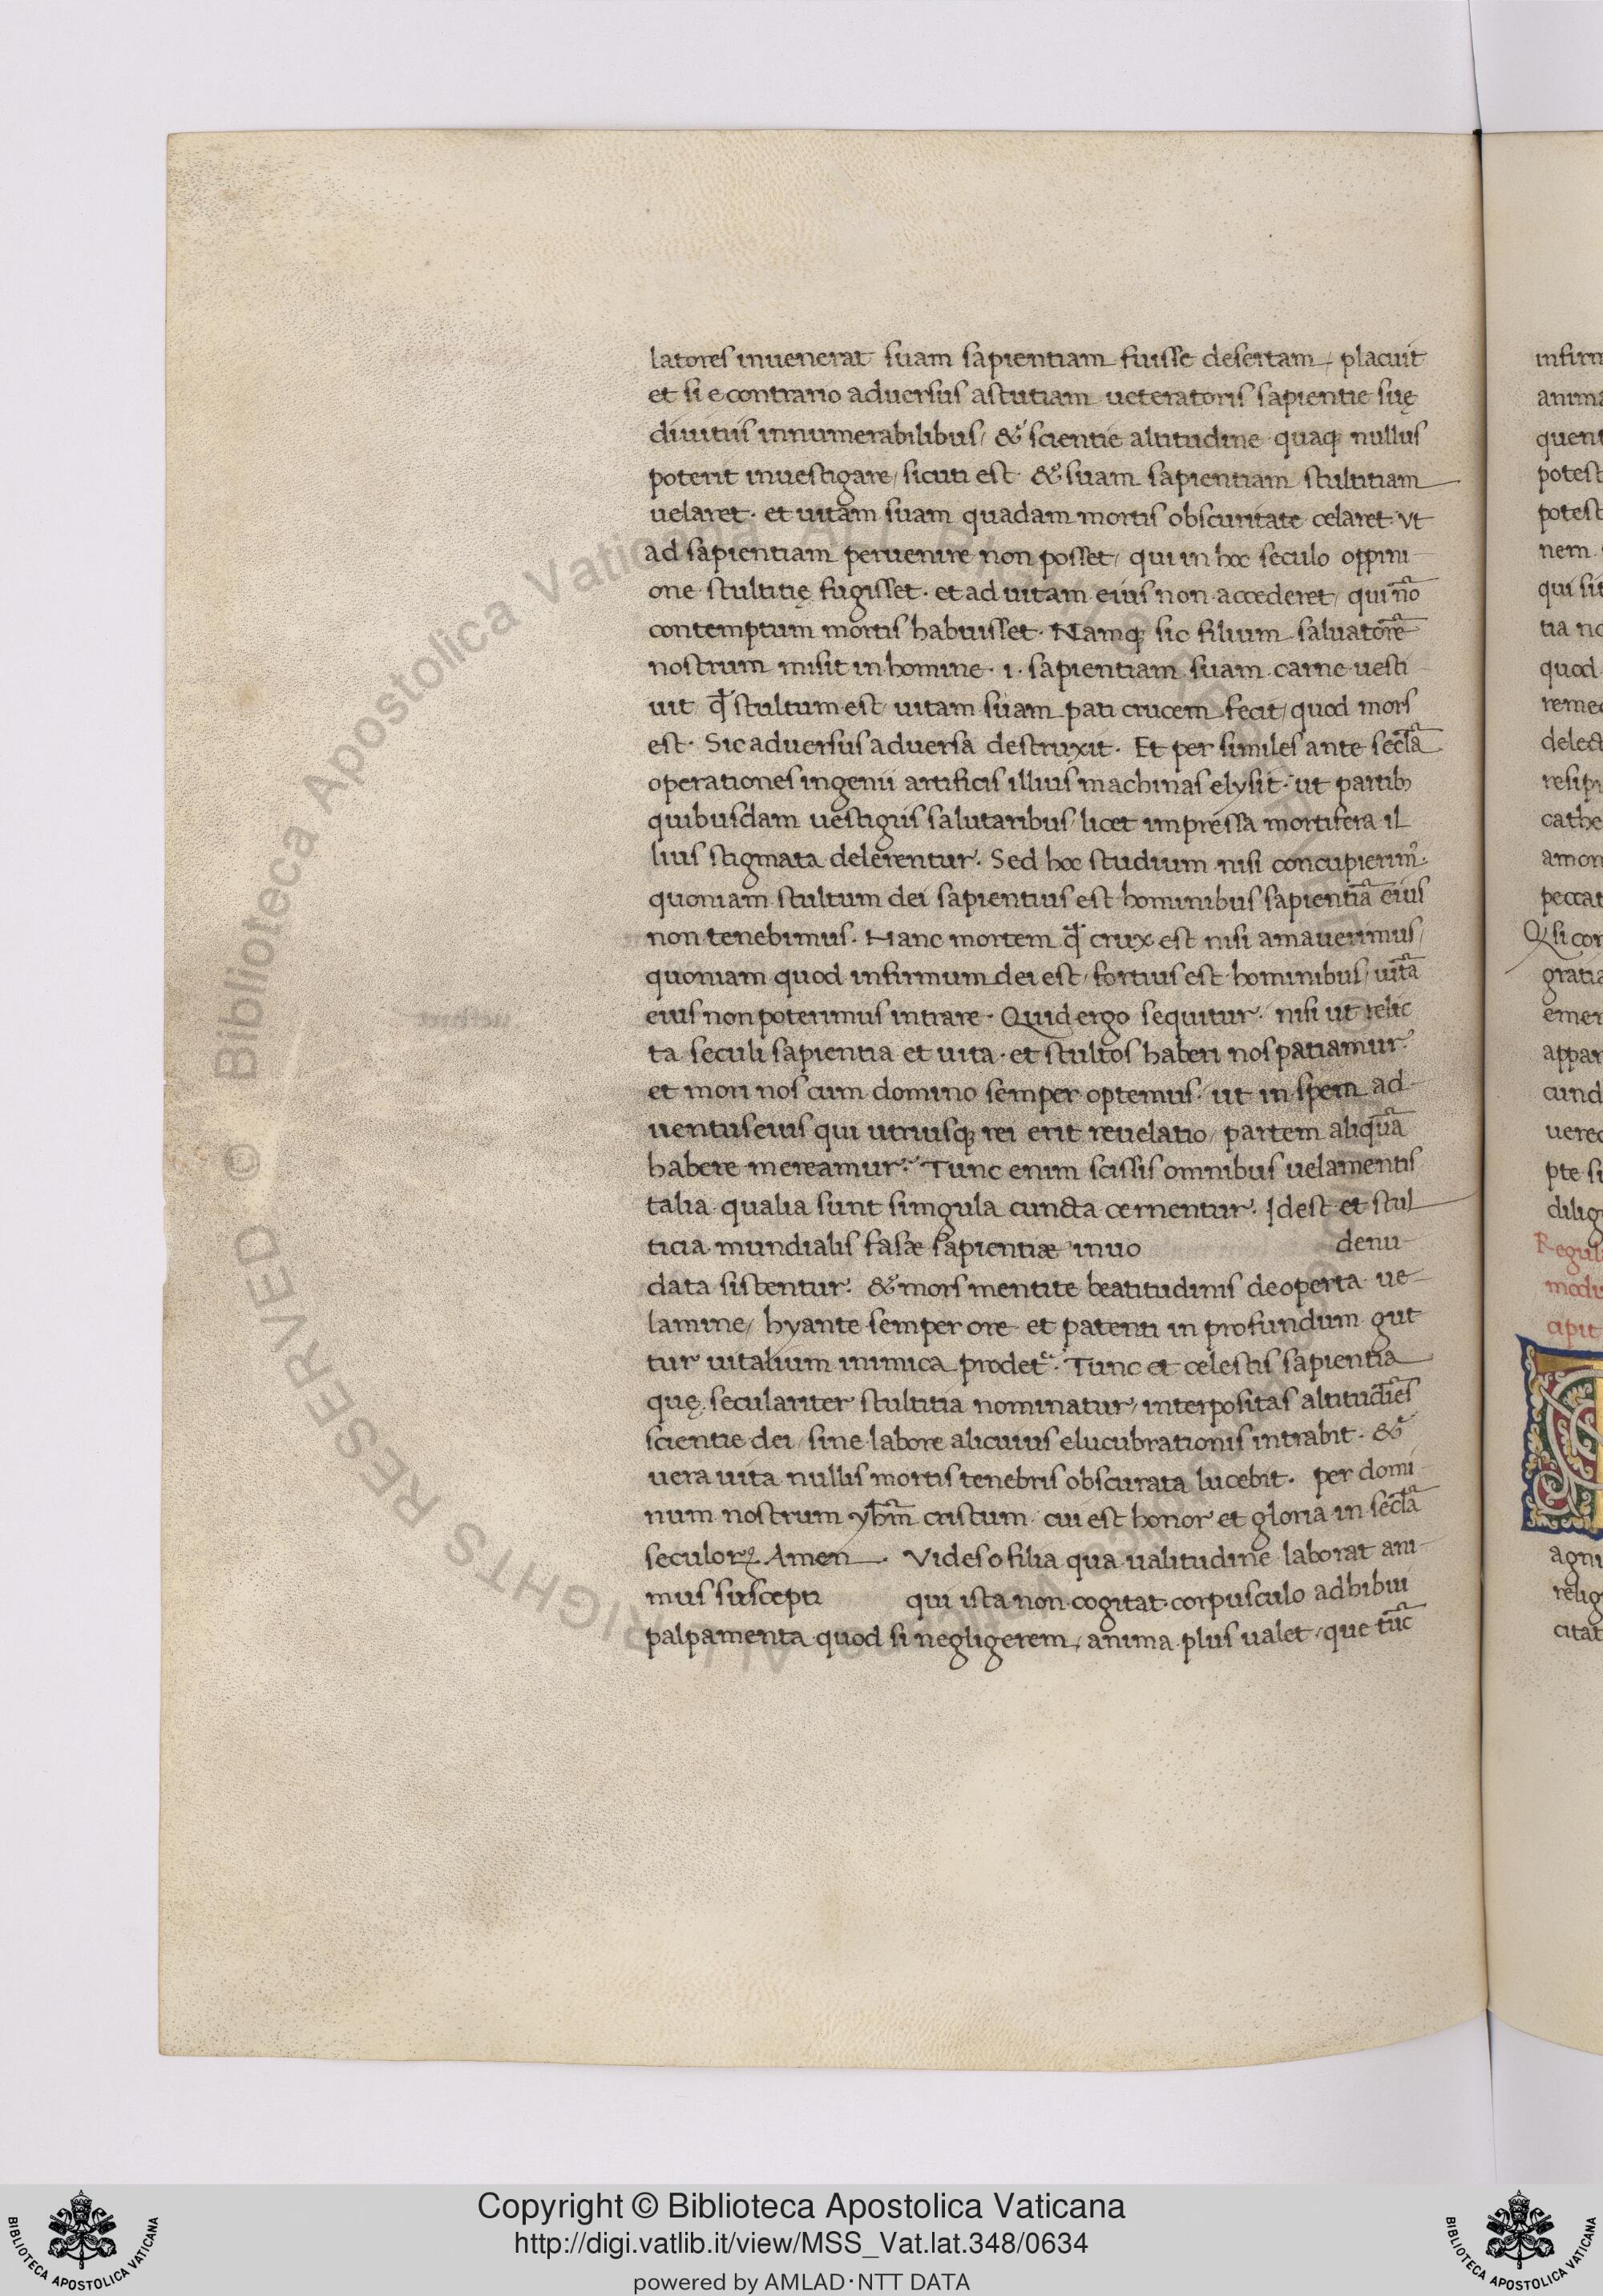 latores inuenerat suam sapientiam fuisse desertam, placuit
et si e contrario aduersus astutiam ueteratoris sapientie suę
diuitiis innumerabilibus, & scientie altitudine quaq; nullus
poterit inuestigare, sicuti est. & suam sapientiam stultitiam
uelaret. et uitam suam quadam mortis obscuritate celaret vt
ad sapientiam peruenire non posset, qui in hoc seculo oppini
one stultitię fugisset. et ad uitam eius non accederet, qui nō
contemptum mortis habuisset. Namq; sic filium saluatorē
nostrum misit in homine. i. sapientiam suam carne uesti
uit qđ stultum est, uitam suam pati crucem fecit, quod mors
est. Sic aduersus aduersa destruxit. Et per similes ante secl̄a
operationes ingenii artificis illius machinas elysit. ut partib;
quibusdam uestigiis salutaribus, licet impressa mortifera il
lius stigmata delerentur. Sed hoc studium nisi concupierim9.
quoniam stultum dei sapientius est hominibus sapientiā eius
non tenebimus. Hanc mortem q̄ crux est nisi amauerimus,
quoniam quod infirmum dei est, fortius est hominibus, uitā
eius non poterimus intrare. Quid ergo sequitur. nisi ut relic
ta seculi sapientia et uita. et stultos haberi nos patiamur.
et mori nos cum domino semper optemus. ut in spem ad
uentus eius qui utriusq; rei erit reuelatio, partem aliquā
habere mereamur. Tunc enim scissis omnibus uelamentis
talia qualia sunt simgula cuncta cernentur. Idest et stul
ticia mundialis falsæ sapientiæ inuo denu
data sistentur. & mors mentite beatitudinis deoperta ue
lamine, hyante semper ore et patenti in profundum gut
tur uitalium inimica prodet᷑. Tunc et celestis sapientia
quę seculariter stultitia nominatur, interpositas altitudīes
scientie dei, sine labore alicuius elucubrationis intrabit. &
uera uita nullis mortis tenebris obscurata lucebit. per domi
num nostrum yhm̄ cristum cui est honor et gloria in secl̄a
seculoꝝ Amen. Vides o filia qua ualitudine laborat ani
mus suscepti qui ista non cogitat corpusculo adhibui
palpamenta quod si negligerem, anima plus ualet, que tūc
infirm
anima
quent
potest
potest
nem.
qui sit
tia no
quod
remed
delect
resipi
cathe
amon
peccat
Q si con
gratia
emer
appar
cund
uered
pte si
dilig
Regul
modi
apit
agni
relig
citat
© Biblioteca Apostolica Vaticana
ALL RIGHTS RESERVED
Copyright © Biblioteca Apostolica Vaticana
http://digi.vatlib.it/view/MSS_Vat.lat.348/0634
powered by AMLAD·NTT DATA
BIBLIOTECA APOSTOLICA VATICANA
BIBLIOTECA APOSTOLICA VATICANA